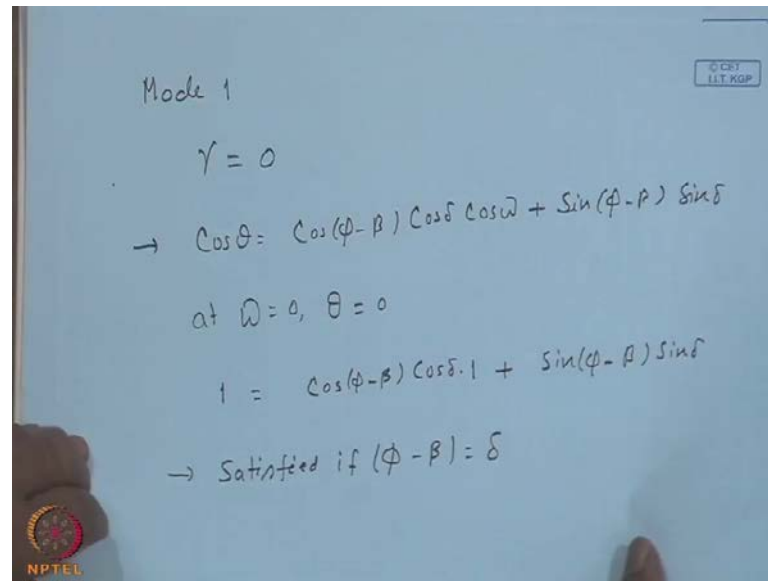 © CET
I.I.T. KGP
Mode 1
γ = 0
→ Cosθ = Cos(φ-β) Cosδ Cosω + Sin(φ-β) Sinδ
at ω = 0, θ = 0
1 = Cos(φ-β) Cosδ.1 + Sin(φ-β) Sinδ
→ Satisfied if (φ-β) = δ
NPTEL